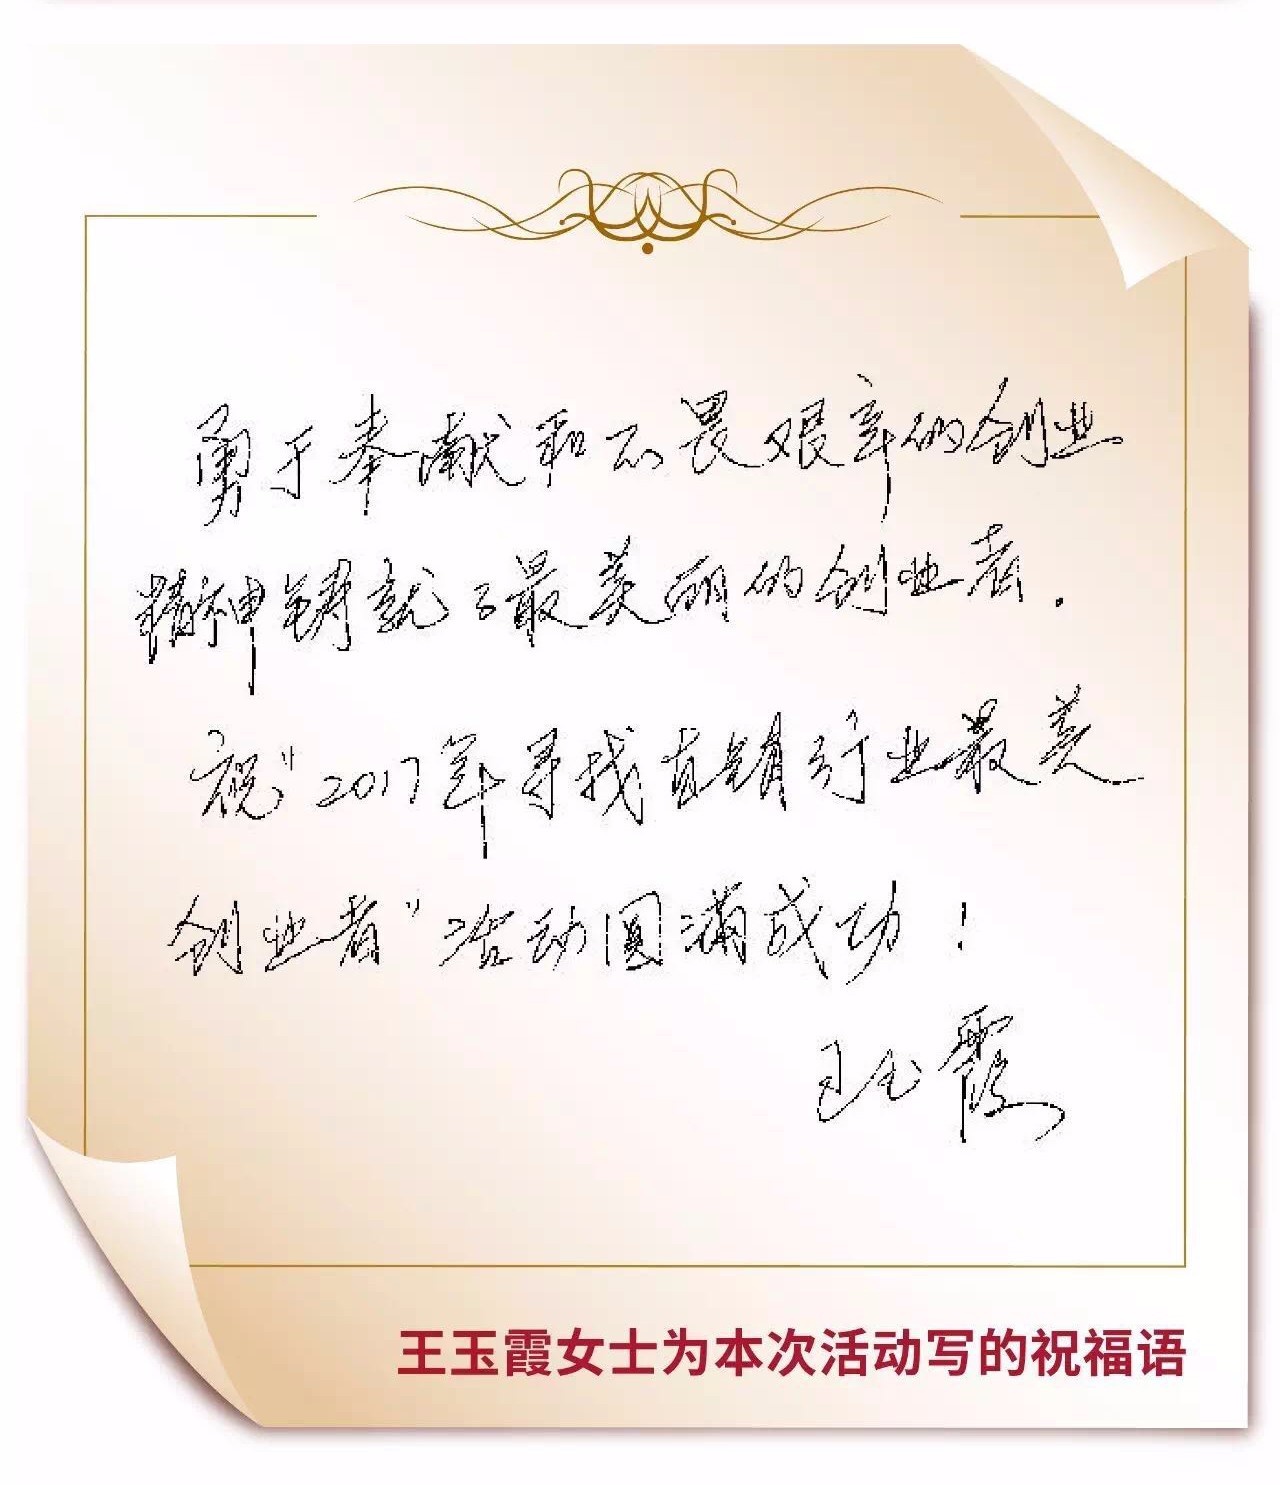 勇于奉献和不畏艰辛的创业
精神铸就了最美丽的创业者.
祝"2017年寻找直销行业最美
创业者"活动圆满成功!
王玉霞
王玉霞女士为本次活动写的祝福语